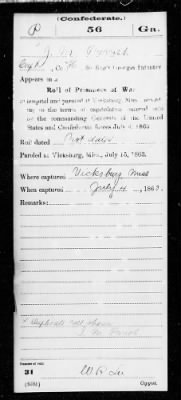 (Confederate.)
P 56 Ga.
J. M.
Capt, Co. , 56 Reg't Georgia Infantry.
Appears on a
Roll of Prisoners of War
paroled at Vicksburg, Miss., according to the terms of capitulation entered into by the commanding Generals of the United States and Confederate forces July 4, 1863.
Roll dated Not dated
Paroled at Vicksburg, Miss., July 15, 1863.
Where captured Vicksburg Miss
When captured July 4, 1863.
Remarks:
Duplicate roll shows
J. M.
Number of roll:
31
Copyist.